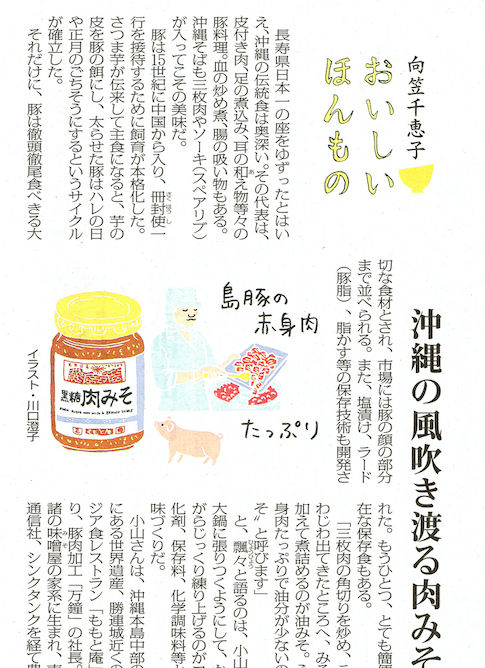 向笠千恵子
おいしい
ほんもの
沖縄の風吹き渡る肉みそ
長寿県日本一の座をゆずったとはい
え、沖縄の伝統食は奥深い。その代表は、
皮付き肉、足の煮込み、耳の和え物等々の
豚料理。血の炒め煮、腸の吸い物もある。
沖縄そばも三枚肉やソーキ(スペアリブ)
が入ってこその美味だ。
豚は15世紀に中国から入り、冊封使一
行を接待するために飼育が本格化した。
さつま芋が伝来して主食になると、芋の
皮を豚の餌にし、太らせた豚はハレの日
や正月のごちそうにするというサイクル
が確立した。
それだけに、豚は徹頭徹尾食べきる大
切な食材とされ、市場には豚の顔の部分
まで並べられる。また、塩漬け、ラード
(豚脂)、脂かす等の保存技術も開発さ
島豚の
赤身肉
たっぷり
黒糖肉みそ
イラスト・川口澄子
れた。もうひとつ、とても簡便
在な保存食もある。
「三枚肉の角切りを炒め、
わじわ出てきたところへ、み
加えて煮詰めるのが油みそ。
身肉たっぷりで油分が少ないの
そ〟と呼びます」
と、飄々と語るのは、小山
大鍋に張りつくようにして、
がらじっくり練り上げるのが
化剤、保存料、化学調味料等
味づくりだ。
小山さんは、沖縄本島中部の
にある世界遺産、勝連城近くの
ジア食レストラン「ももと庵
り、豚肉加工「万鐘」の社長
諸の味噌屋の家系に生まれ、
通信社、シンクタンクを経て